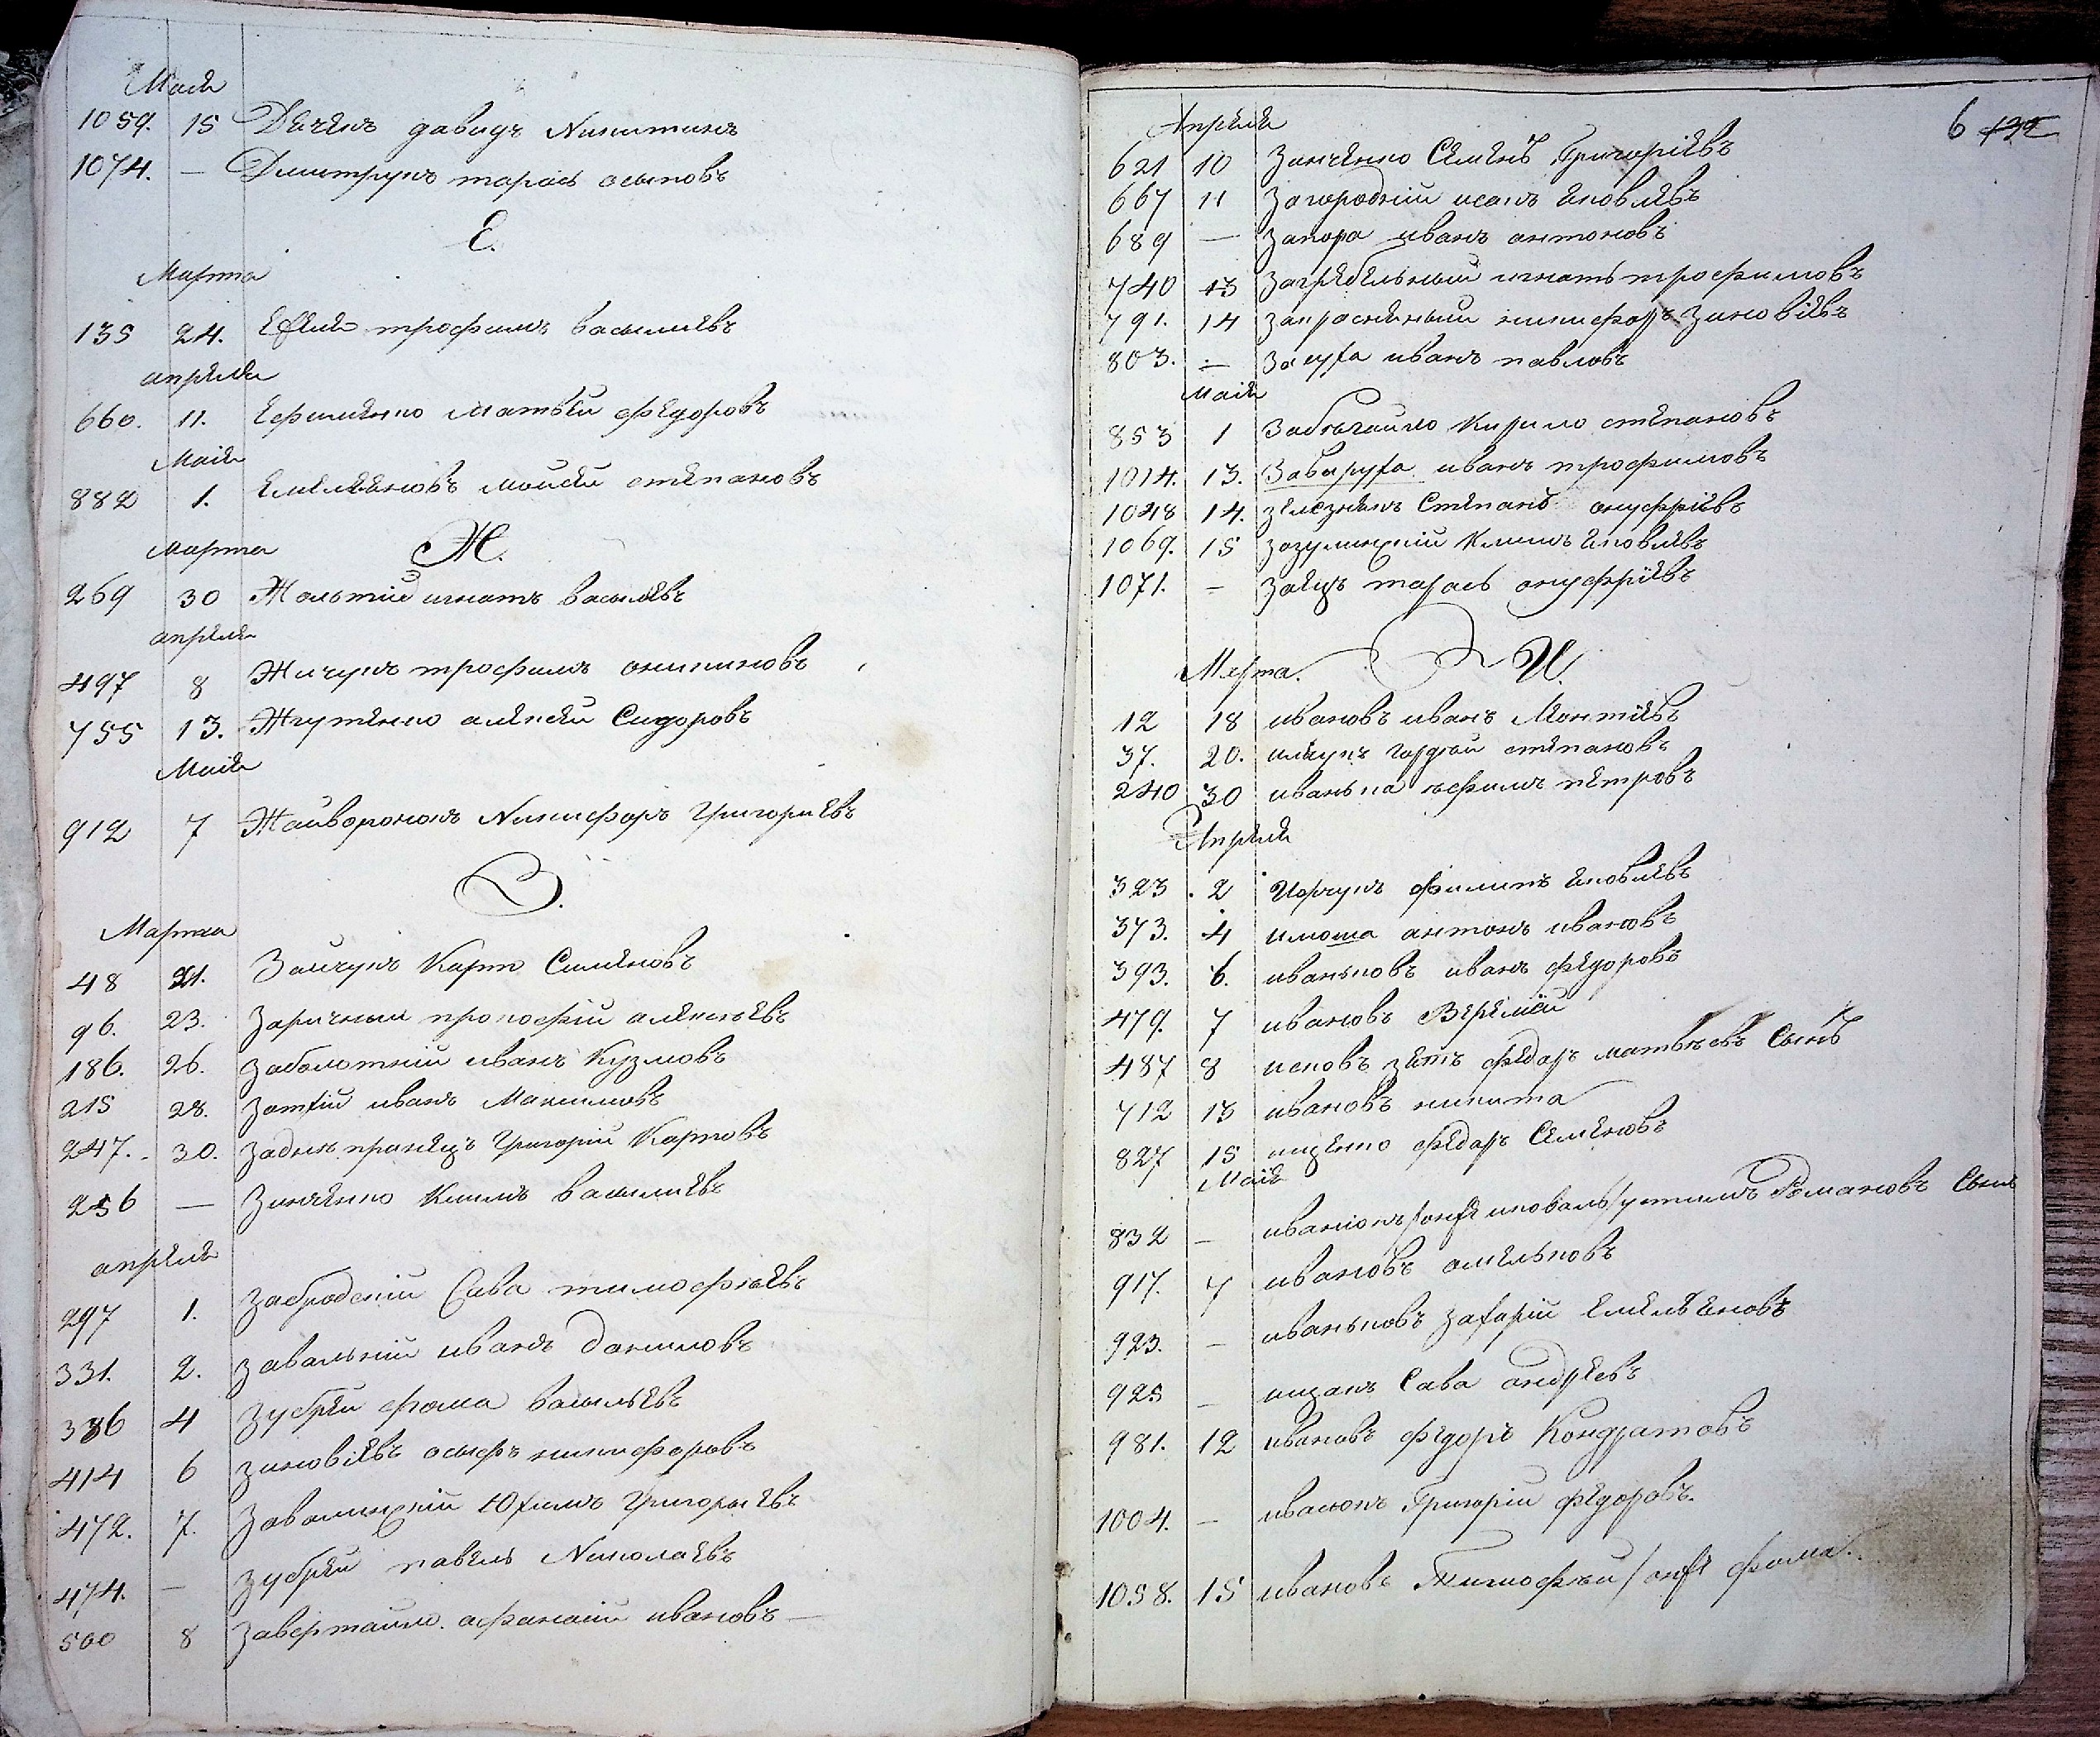 Маія
1059. 15 Дячекъ давидъ Никитинъ
1074. — Дмитрукъ тарасъ осиповъ
Е.
Марта
135 24. трофимъ василиевъ
апреля
660. 11. Ефименко Матвей федоровъ
Маія
882 1. Емельяновъ моисей степановъ
Марта Ж.
269 30 Жолтий игнатъ васильевъ
апреля
497 8 Жичукъ трофимъ
755 13. Жгутенко алексей Сидоровъ
Маія
912 7 Жайворонокъ Никифоръ Григориевъ
З.
Марта
48 21. Зайчукъ Карпо Сименовъ
96. 23. Заричный прокофій алексѣевъ
186. 26. Заболотній иванъ Кузмовъ
215 28. иванъ Максимовъ
247. 30. Григорій Карповъ
256 — Зинченко Климъ василиевъ
апреля
297 1. Забродскій Сава тимофѣевъ
331. 2. Завальній иванъ даниловъ
386 4 Зубрей фома васильевъ
414 6 зиновіевъ осифъ никифоровъ
472. 7. Завалинскій Юхимъ Григорьевъ
474. — Зубрей павелъ Николаевъ
500 8 Завертайло афанасій ивановъ —
6 132
Апреля
621 10 Зинченко Семенъ Григоріевъ
667 11 Загородній исакъ яковлевъ
689 — Запора иванъ антоновъ
740 13 Загребельный игнатъ трофимовъ
791. 14 никифоръ Зиновіевъ
803. — иванъ павловъ
Маія
853 1 Кирило степановъ
1014. 13. Заверуха иванъ трофимовъ
1048 14. зелезнякъ Степанъ онуфріевъ
1069. 15 зозулинскій Климъ яковлевъ
1071. — Заецъ тарасъ онуфріевъ
Марта. И.
12 18 ивановъ иванъ Леонтіевъ
37. 20. гордѣй степановъ
240 30 иванька юфимъ петровъ
Апреля
323 2 Иорчукъ филипъ яковлевъ
373. 4 илюша антонъ ивановъ
393. 6. иваньковъ иванъ федоровъ
479. 7 ивановъ Веремѣй
487 8 исковъ зять федоръ матвѣевъ Сынъ
712 13 ивановъ никита
827 15 ищенко федоръ Семеновъ
Маія
832 — иванюкъ / онже коваль / устимъ Романовъ Сынъ
917. 7 ивановъ омельковъ
923. — иваньковъ Захарій Емельяновъ
925 — Сава андреевъ
981. 12 ивановъ федоръ Кондратовъ
1004. — иванюкъ Григорій федоровъ.
1058. 15 ивановъ Тимофѣй / онже фома.